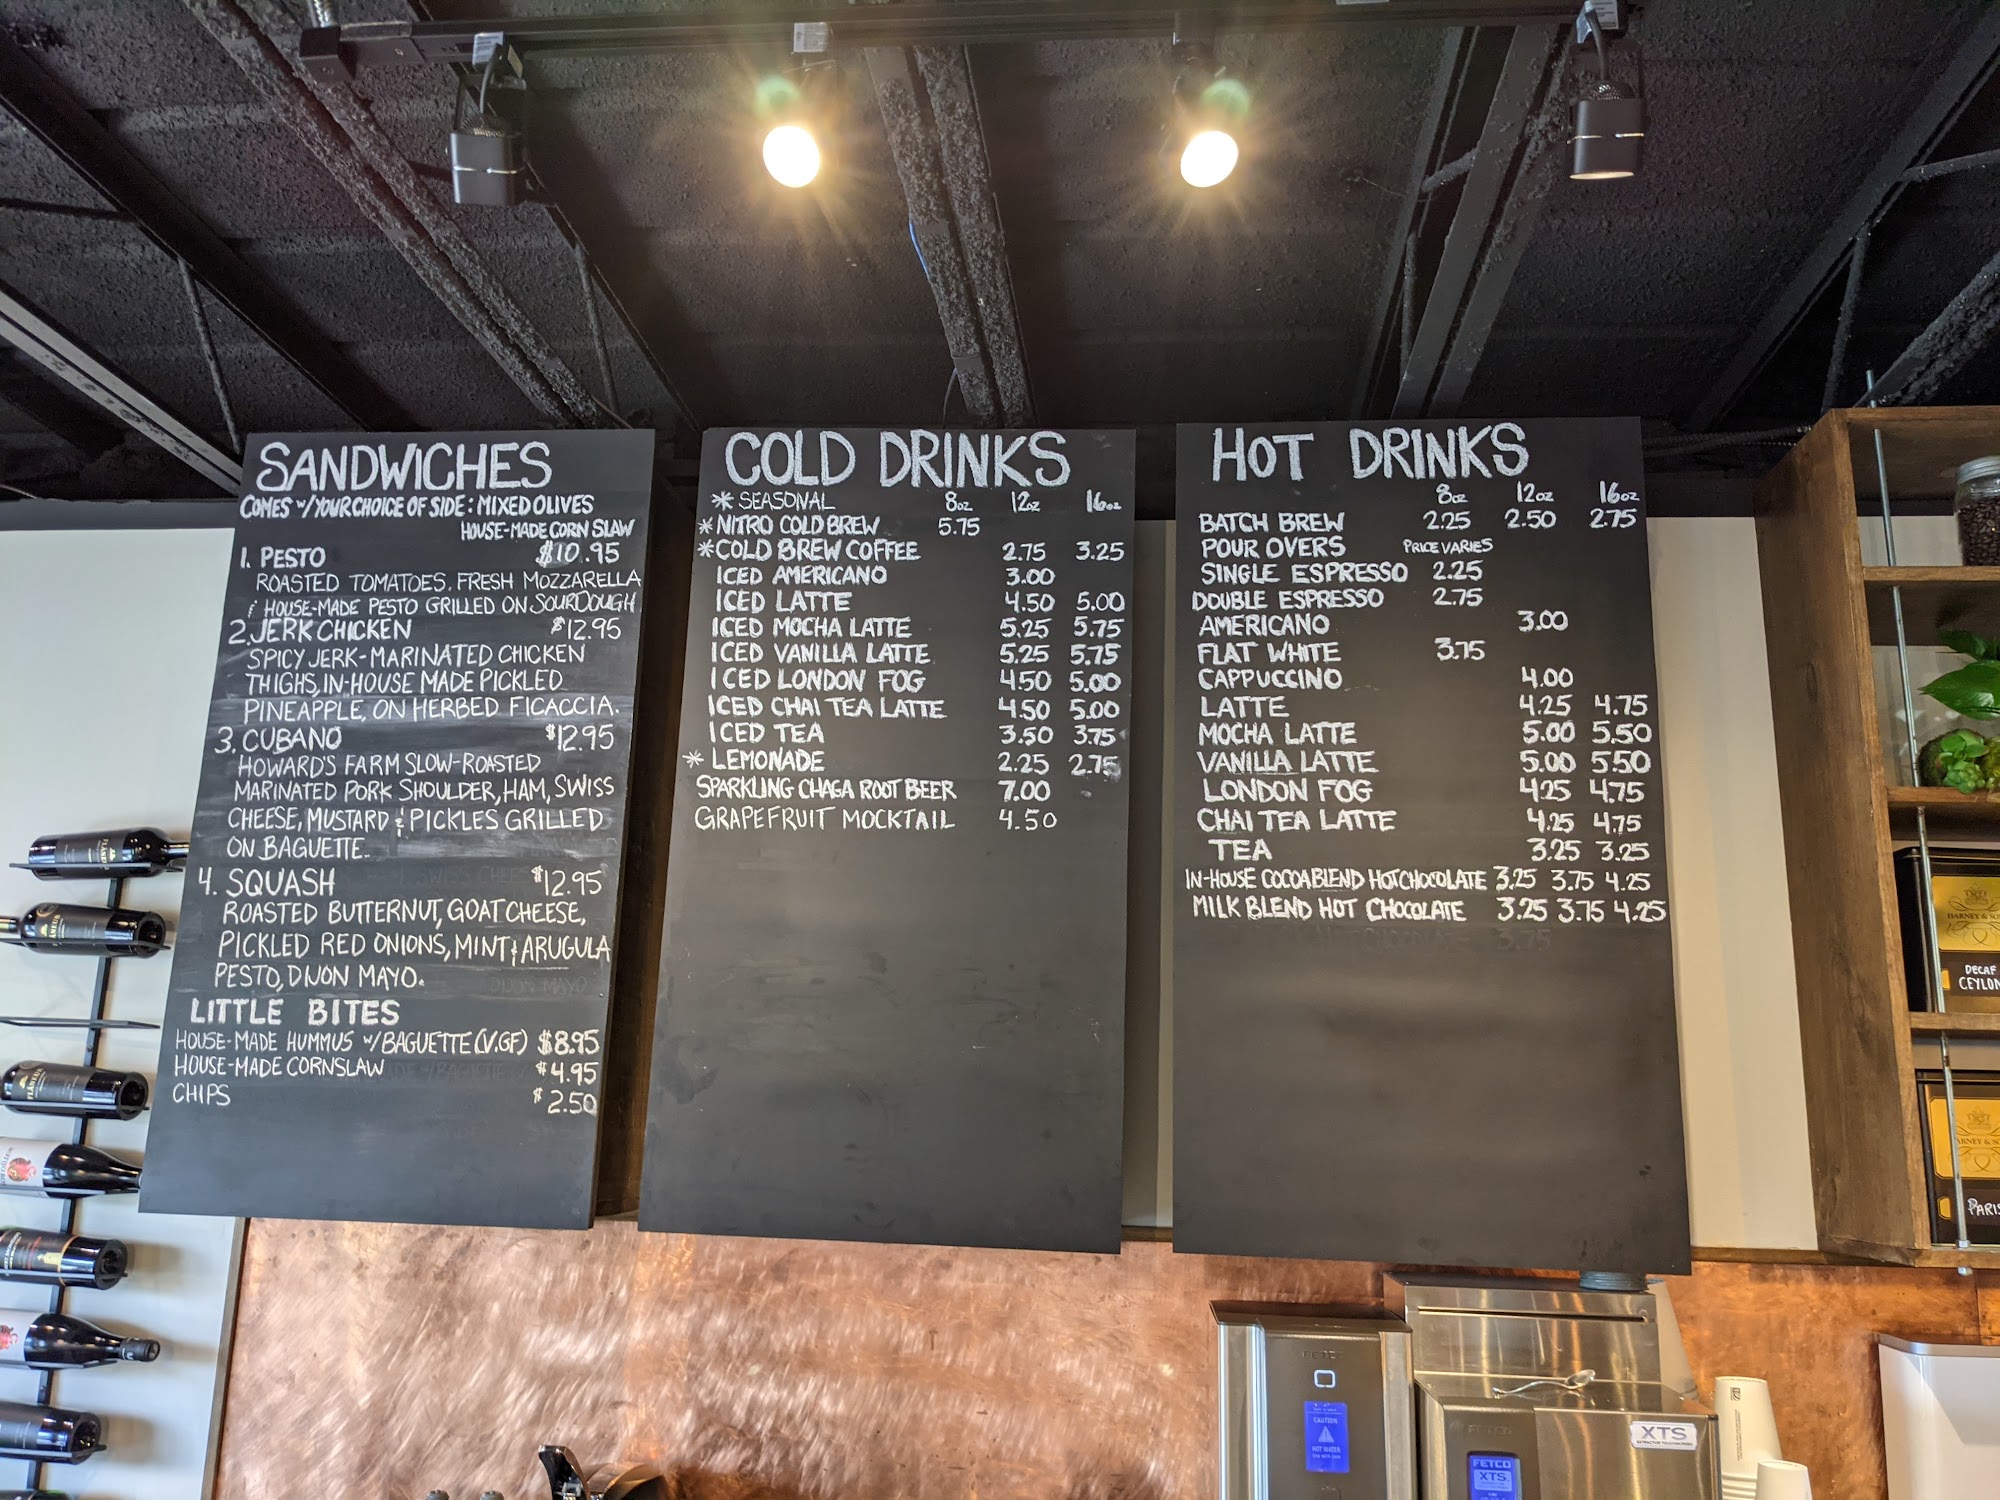 SANDWICHES
COMES W/ YOUR CHOICE OF SIDE: MIXED OLIVES
HOUSE-MADE CORN SLAW
1. PESTO $10.95
ROASTED TOMATOES, FRESH MOZZARELLA
& HOUSE-MADE PESTO GRILLED ON SOURDOUGH
2. JERK CHICKEN $12.95
SPICY JERK-MARINATED CHICKEN
THIGHS, IN-HOUSE MADE PICKLED
PINEAPPLE, ON HERBED FICACCIA.
3. CUBANO $12.95
HOWARD'S FARM SLOW-ROASTED
MARINATED PORK SHOULDER, HAM, SWISS
CHEESE, MUSTARD & PICKLES GRILLED
ON BAGUETTE.
4. SQUASH $12.95
ROASTED BUTTERNUT, GOAT CHEESE,
PICKLED RED ONIONS, MINT & ARUGULA
PESTO, DIJON MAYO.
LITTLE BITES
HOUSE-MADE HUMMUS W/ BAGUETTE (V.GF) $8.95
HOUSE-MADE CORNSLAW $4.95
CHIPS $2.50
COLD DRINKS
* SEASONAL 8oz 12oz 16oz
* NITRO COLD BREW 5.75
* COLD BREW COFFEE 2.75 3.25
ICED AMERICANO 3.00
ICED LATTE 4.50 5.00
ICED MOCHA LATTE 5.25 5.75
ICED VANILLA LATTE 5.25 5.75
ICED LONDON FOG 4.50 5.00
ICED CHAI TEA LATTE 4.50 5.00
ICED TEA 3.50 3.75
* LEMONADE 2.25 2.75
SPARKLING CHAGA ROOT BEER 7.00
GRAPEFRUIT MOCKTAIL 4.50
HOT DRINKS
8oz 12oz 16oz
BATCH BREW 2.25 2.50 2.75
POUR OVERS PRICE VARIES
SINGLE ESPRESSO 2.25
DOUBLE ESPRESSO 2.75
AMERICANO 3.00
FLAT WHITE 3.75
CAPPUCCINO 4.00
LATTE 4.25 4.75
MOCHA LATTE 5.00 5.50
VANILLA LATTE 5.00 5.50
LONDON FOG 4.25 4.75
CHAI TEA LATTE 4.25 4.75
TEA 3.25 3.25
IN-HOUSE COCOA BLEND HOT CHOCOLATE 3.25 3.75 4.25
MILK BLEND HOT CHOCOLATE 3.25 3.75 4.25
DECAF
CEYLON
PARIS
CAUTION
HOT WATER
FETCO
XTS
XTS